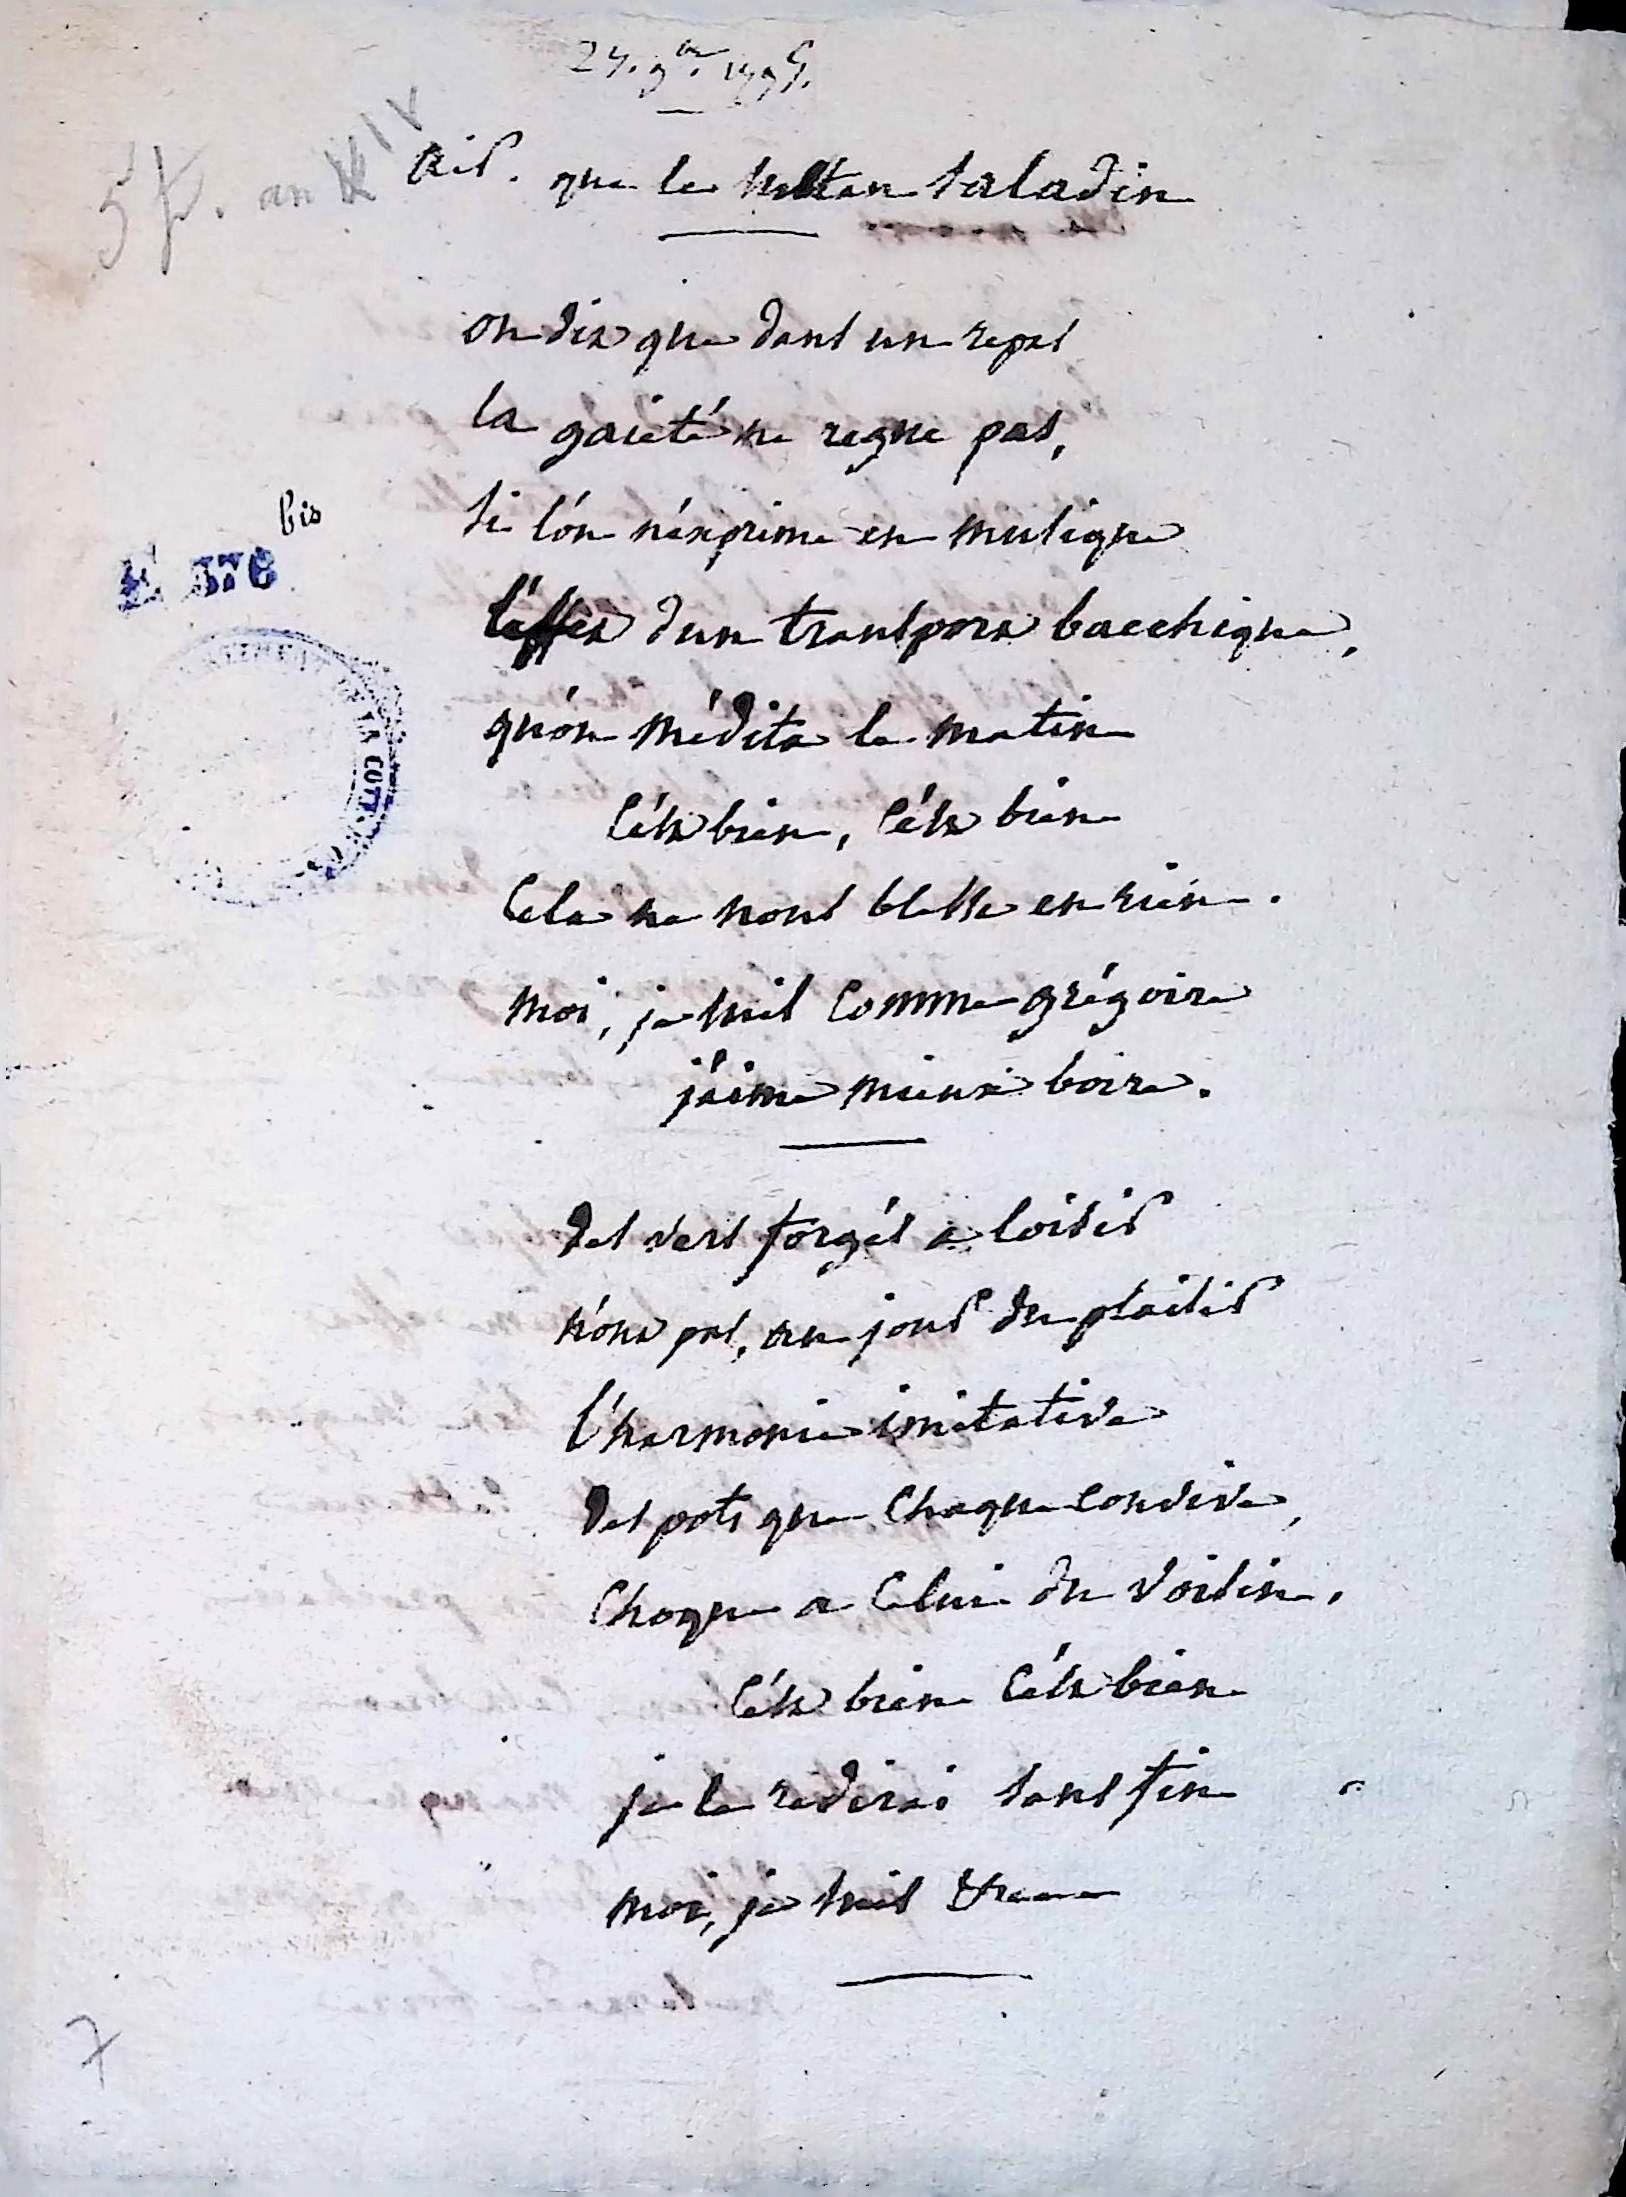 24. 9bre. 1795.
5 f. an XIV
air. que le sultan saladin
on dit que dans un repas
la gaieté ne regne pas,
bis
si l'on n'exprime en musique
l'effet d'un transport bacchique,
qu'on médita le matin
C'est bien, C'est bien
Cela ne nous blesse en rien.
moi, je suis Comme grégoire
j'aime mieux boire.
des vers forgés a loisir
n'ont pas, un jour de plaisir
l'harmonie imitative
des pots que Chaque Convive,
Choque a Celui du voisin,
C'est bien C'est bien
je le redirai sans fin
moi, je suis &
7